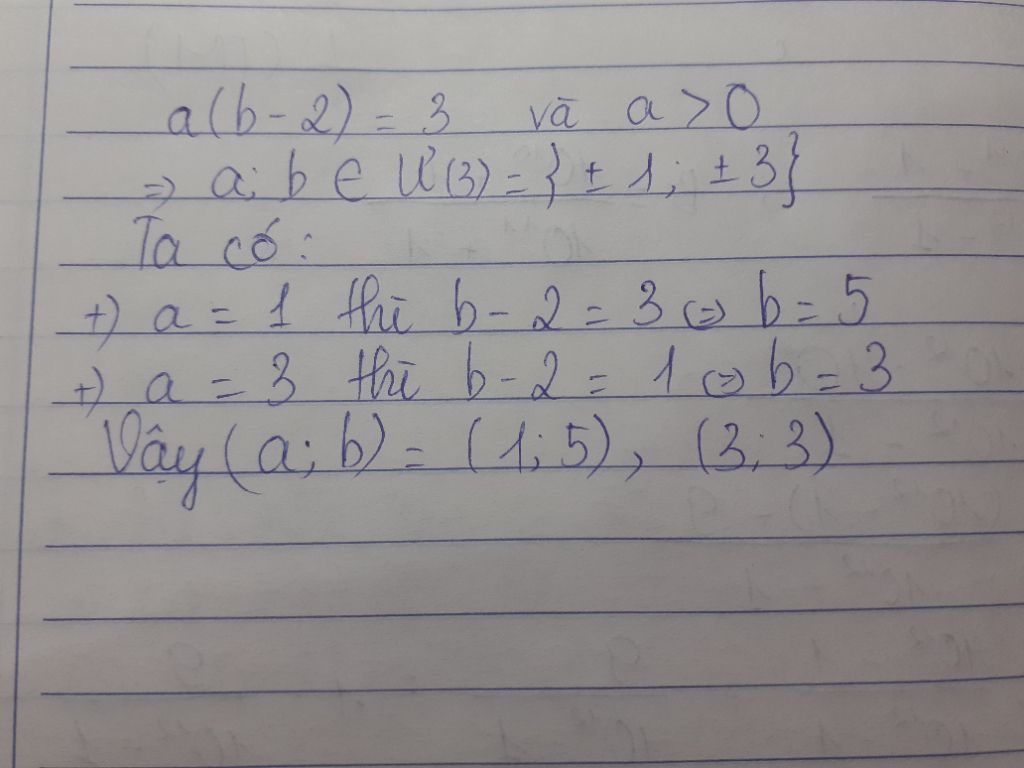 a(b-2) = 3 và a > 0
=> a; b ∈ Ư(3) = {± 1; ± 3}
Ta có:
+) a = 1 thì b - 2 = 3 <=> b = 5
+) a = 3 thì b - 2 = 1 <=> b = 3
Vậy (a; b) = (1; 5), (3; 3)